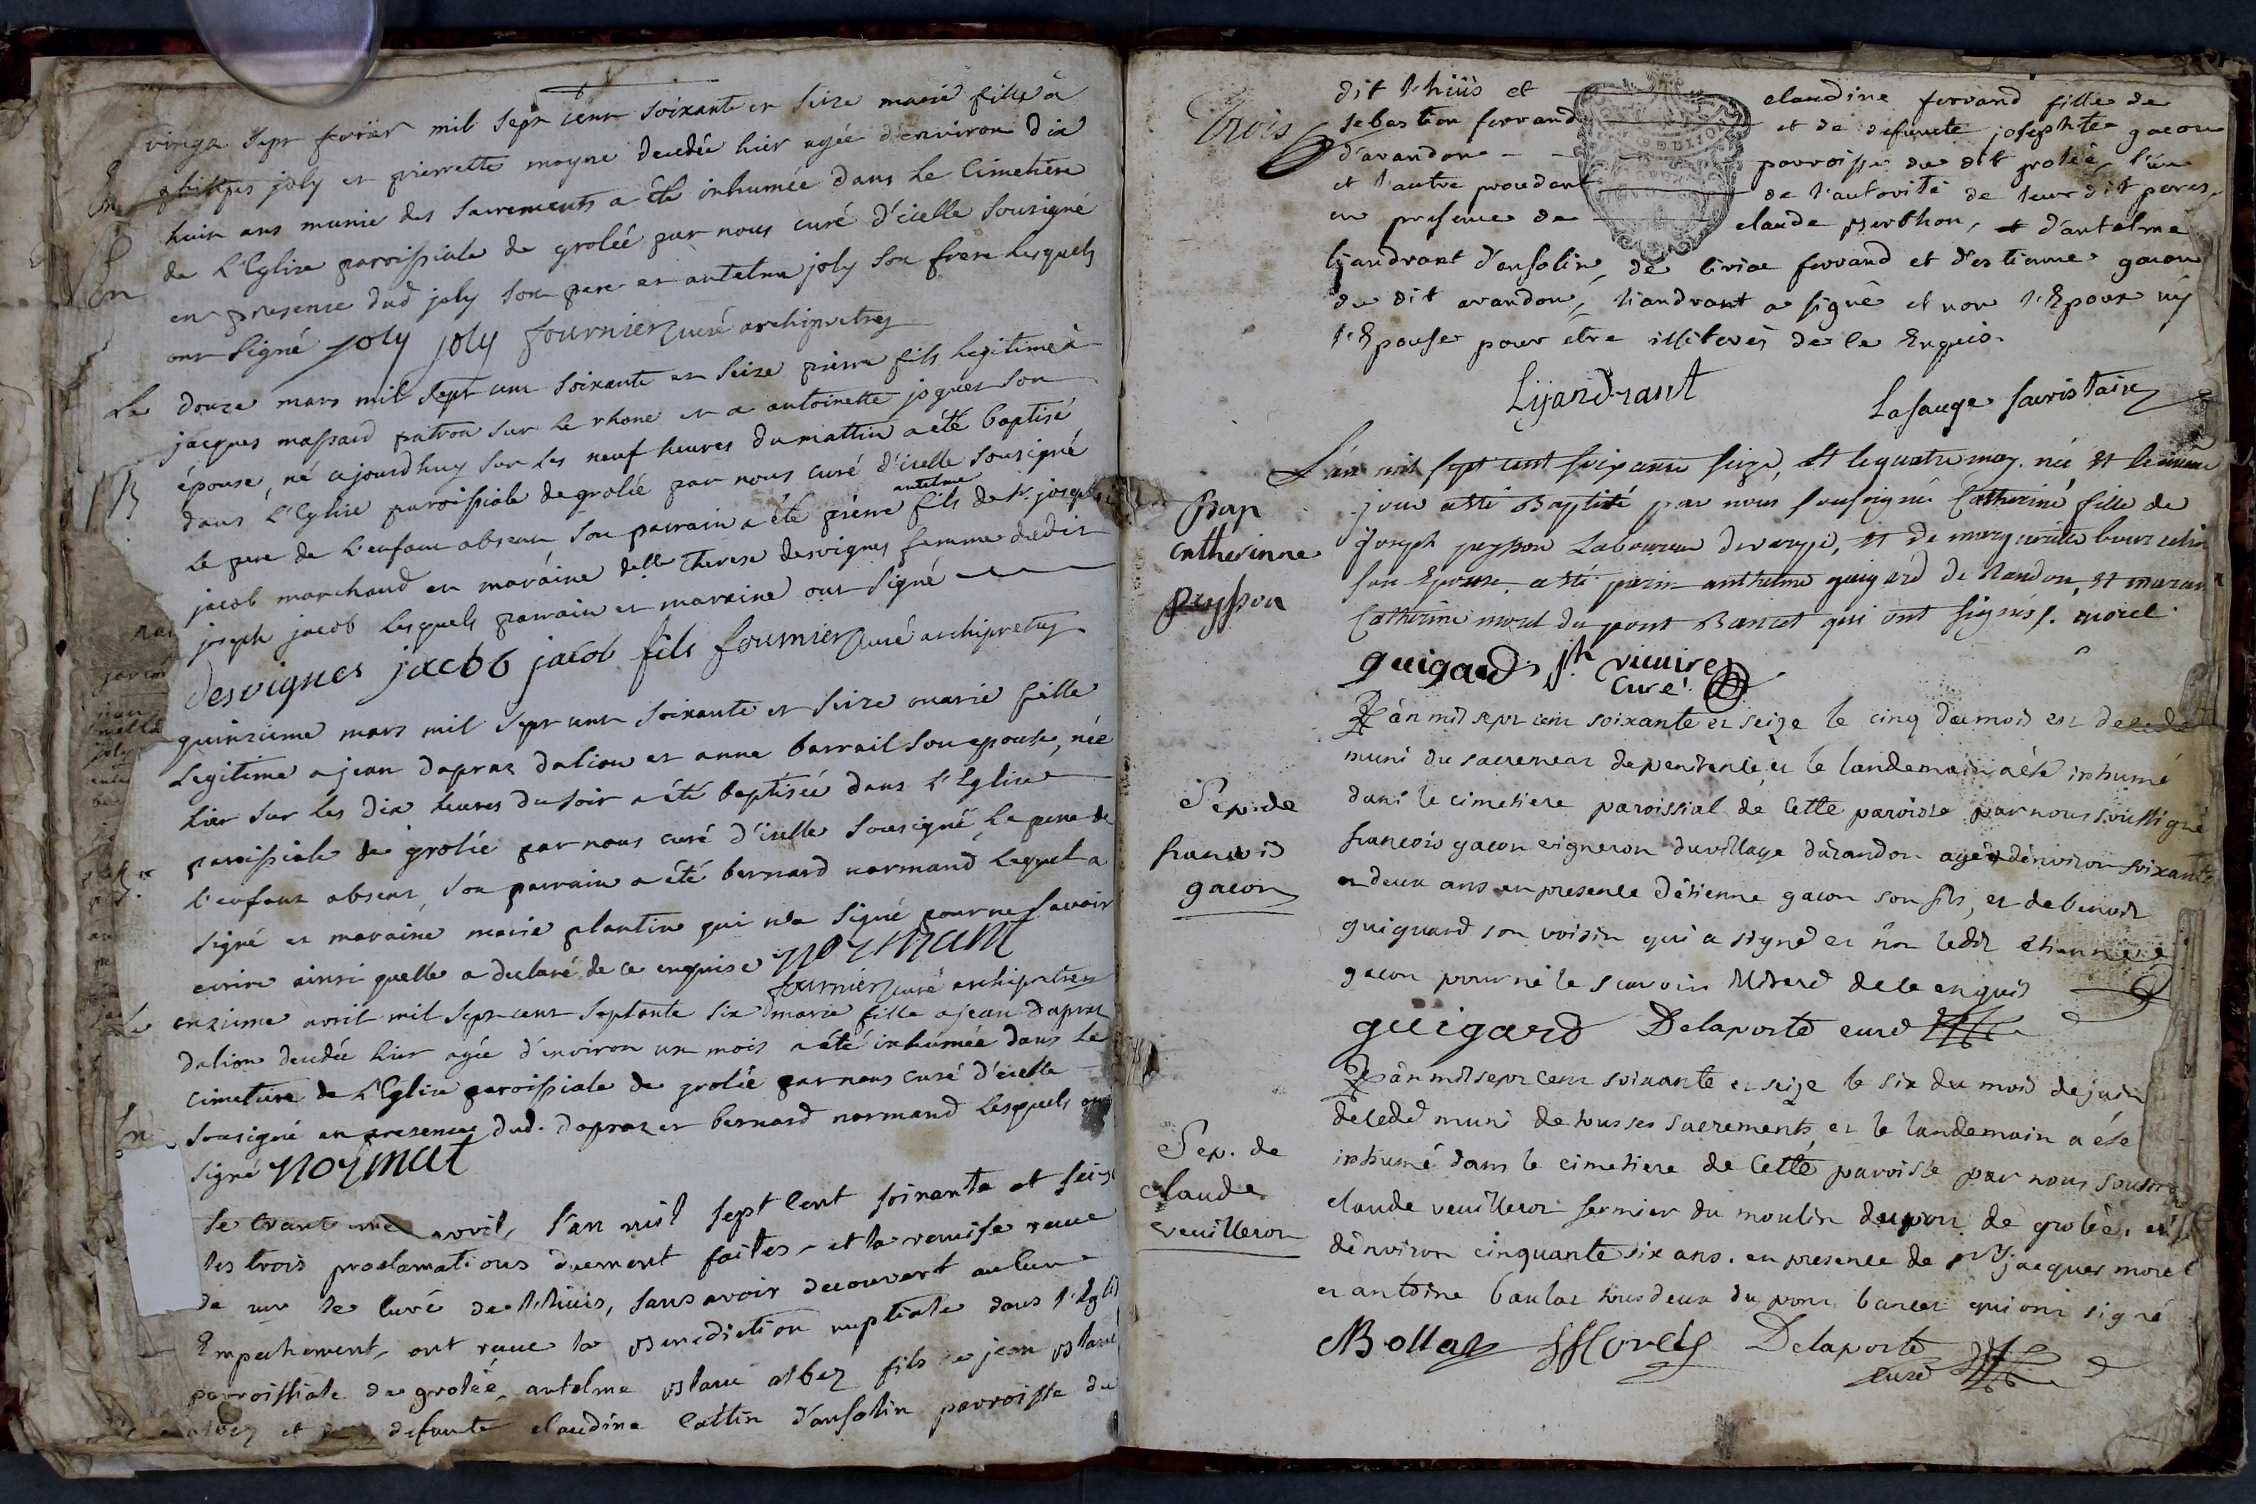 vingt sept fevrier mil sept cent soixante et seize marie fille à
philippes joly et pierrette moyne decedée hier agée d'environ dix
huit ans munie des sacrements a été inhumée dans le Cimetiere
de L'Eglise paroissiale de grolée par nous curé d'icelle sousigné
en presence dud joly son pere et antelme joly son frere lesquels
ont signé joly joly fournier curé archipretre
Le douze mars mil sept cent soixante et seize pierre fils legitime à
jacques massard patron sur le rhone et a antoinette joguet son
épouse, né aujourdhuy sur les neuf heures du mattin a été baptisé
dans L'Eglise paroissiale de grolée par nous curé d'icelle sousigné
antelme
le pere de l'enfant absent son parrain a été pierre fils de sr. joseph
jacob marchand et maraine delle Therese desvignes femme dudit
joseph jacob lesquels parrain et marraine ont signé
desvignes jacob jacob fils fournier curé archipretre
quinzieme mars mil sept cent soixante et seize marie fille
Legitime a jean dapraz dalion et anne barrail son epouse, née
hier sur les dix heures du soir a été baptisée dans L'Eglise
paroissiale de grolée par nous curé d'icelle sousigné, le pere de
l'enfant absent, son parrain a été bernard normand lequel a
signé et maraine marie plantin qui n'a signé pour ne savoir
ecrire ainsi quelle a declaré de ce enquise normant
fournier curé archipretre
Le onzieme avril mil sept cent septante six marie fille a jean dapraz
dalion decedée hier agée d'environ un mois a été inhumée dans le
cimetiere de L'Eglise paroissiale de grolée par nous curé d'icelle
sousigné en presence dud. dapraz et bernard normand lesquels ont
signé normat
le trante avril, l'an mil sept cent soixante et seize
les trois proclamations duement faites et la remise reçue
de mr le curé de l'huis, sans avoir decouvert aucun
Empechement, ont reçue la benediction nuptiale dans l'Eglise
parroissiale de grolée, antelme albez fils de jean
et de defunte claudine Cattin d'ansolin parroisse du
Trois
dit l'huis et claudine ferrand fille de
sebastien ferrand et de defunte josephte gacon
d'avandon parroisse du dit grolée, l'un
et l'autre procedant de l'autorité de leur dit peres,
en presence de claude berthon, et d'antelme
lijandrant d'ansolin, de ferrand et d'estienne gacon
du dit avandon, lijandrant a signé et non l'Epoux ny
l'Epouse pour etre illiterés de ce Enquis.
Lijandrant Lasauge sacristain
L'an mil sept cent soixante seize, et le quatre may. née et le même
jour a été Baptisée par nous soussigné Catherine fille de
joseph peysson Laboureur, et de marguerite
son Epouse, a été parin anthelme guigard de, et maraine
Catherine morel du pont Bancet qui ont signés. morel
Bap
catherinne
peysson
guigard jh vicaire
curé
L'an mil sept cent soixante et seize le cinq du mois est decedé
muni du sacrement de penitence, et le landemain a été inhumé
dans le cimetiere paroissial de cette paroisse par nous soussigné
françois gacon vigneron du village d'avandon agé d'environ soixante
et deux ans en presence d'étienne gacon son fils, et de benoit
guiguard son voisin qui a signé et non ledit étienne
gacon pour ne le scavoir de ce enquis
Sep. de
francois
gacon
guigard Delaporte curé
L'an mil sept cent soixante et seize le six du mois de juin
decedé muni de tous ses sacrements et le landemain a été
inhumé dans le cimetiere de cette paroisse par nous
claude veuilleron fermier du moulin du pont de grolée,
d'environ cinquante six ans. en presence de sr jacques morel
et antoine baulat tous deux du pont bancet qui ont signé
Sep. de
claude
veuilleron
Bollat Morel Delaporte
curé